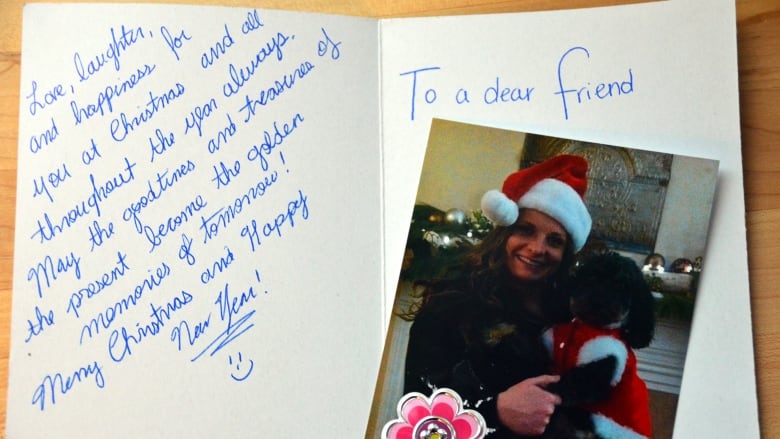 Love, laughter,
and happiness for
you at Christmas and all
throughout the year always.
May the goodtimes and treasures of
the present become the golden
memories of tomorrow!
Merry Christmas and Happy
New Year!
To a dear friend